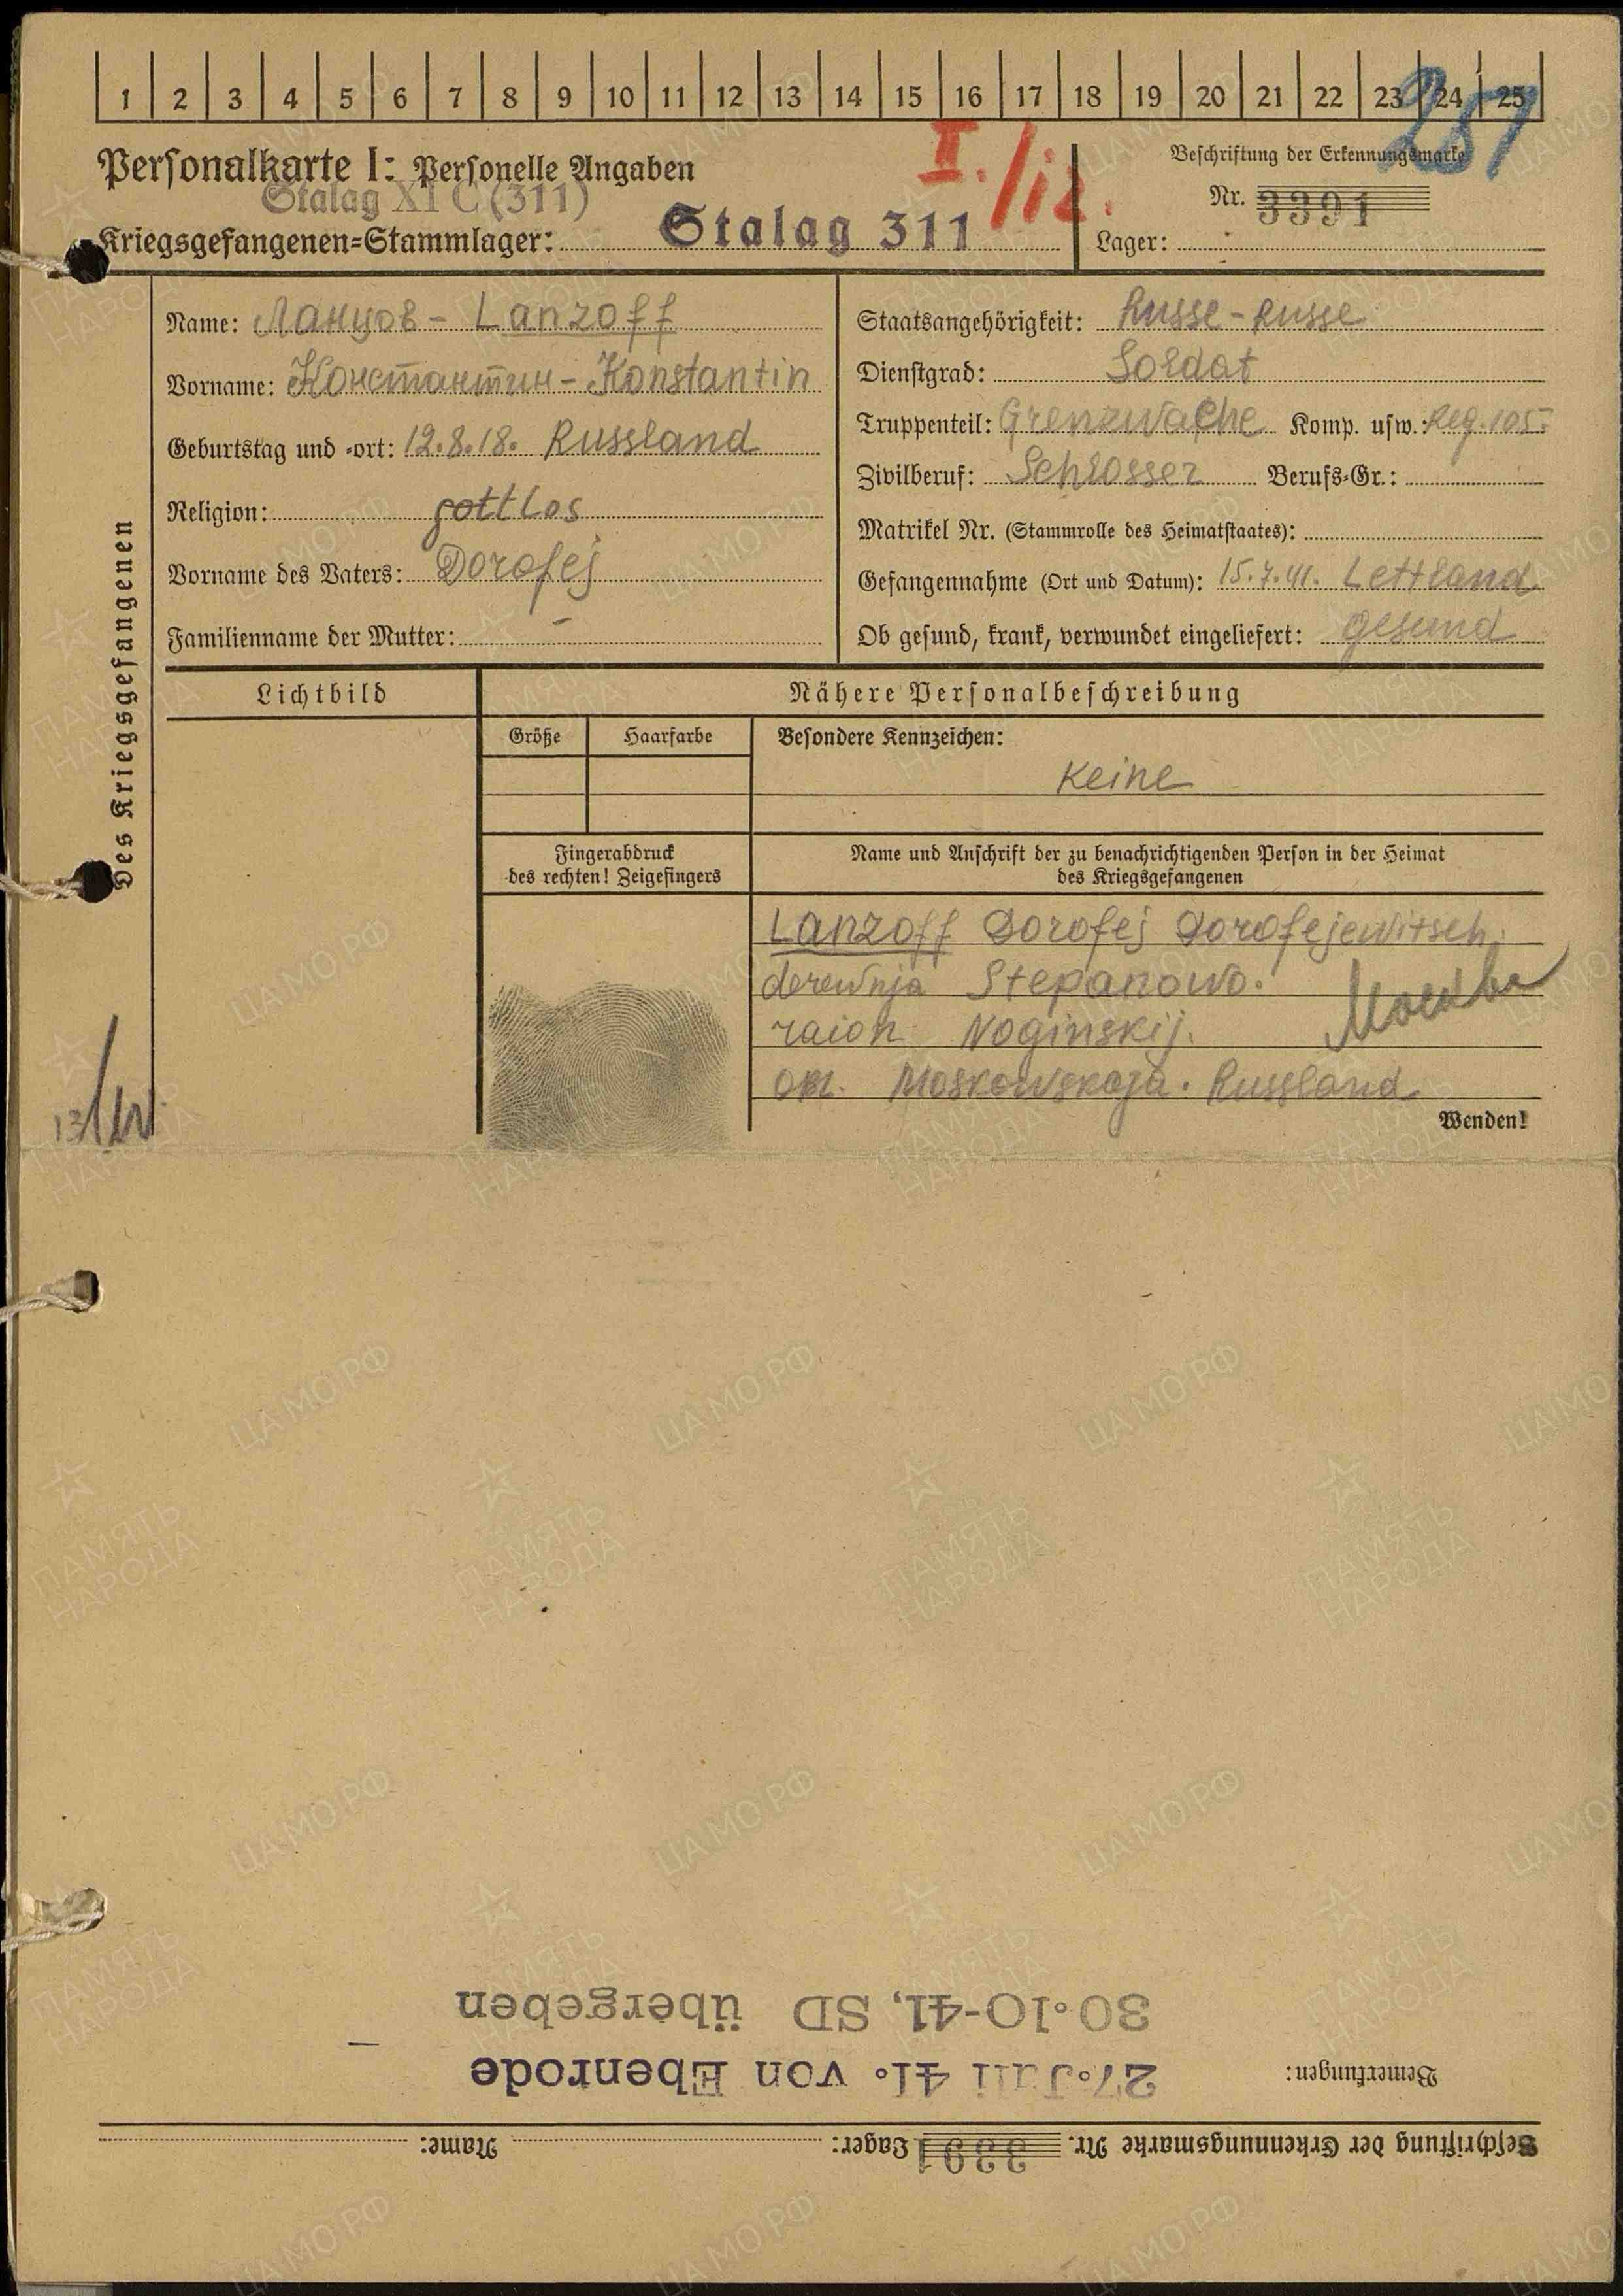 1 2 3 4 5 6 7 8 9 10 11 12 13 14 15 16 17 18 19 20 21 22 23 24 25
257
Personalkarte I: Personelle Angaben
II./12.
Beschriftung der Erkennungsmarke
Stalag XI C (311)
Nr. 3391
Kriegsgefangenen=Stammlager: Stalag 311
Lager:
Des Kriegsgefangenen
Name: Ланцов - Lanzoff
Vorname: Константин - Konstantin
Geburtstag und =ort: 12.8.18. Russland
Religion: gottlos
Vorname des Vaters: Dorofej
Familienname der Mutter: -
Staatsangehörigkeit: Russe - Russe
Dienstgrad: Soldat
Truppenteil: Grenzwache Komp. usw.: Reg. 105
Zivilberuf: Schlosser Berufs=Gr.:
Matrikel Nr. (Stammrolle des Heimatstaates):
Gefangennahme (Ort und Datum): 15.7.41. Lettland
Ob gesund, krank, verwundet eingeliefert: gesund
Lichtbild
Nähere Personalbeschreibung
Größe
Haarfarbe
Besondere Kennzeichen:
keine
Fingerabdruck
des rechten! Zeigefingers
Name und Anschrift der zu benachrichtigenden Person in der Heimat
des Kriegsgefangenen
Lanzoff Dorofej Dorofejewitsch.
derewnja Stepanowo.
Москва
raion Noginskij.
Moskowskaja. Russland
Wenden!
Beschriftung der Erkennungsmarke Nr. 3391 Lager: Name:
Bemerkungen:
27.Juli 41. von Ebenrode
30.10-41, SD übergeben
ЦАМО РФ
ПАМЯТЬ
НАРОДА